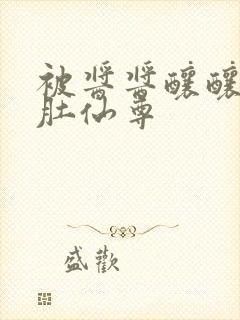 被醬醬釀釀
肚仙尊
盛歡